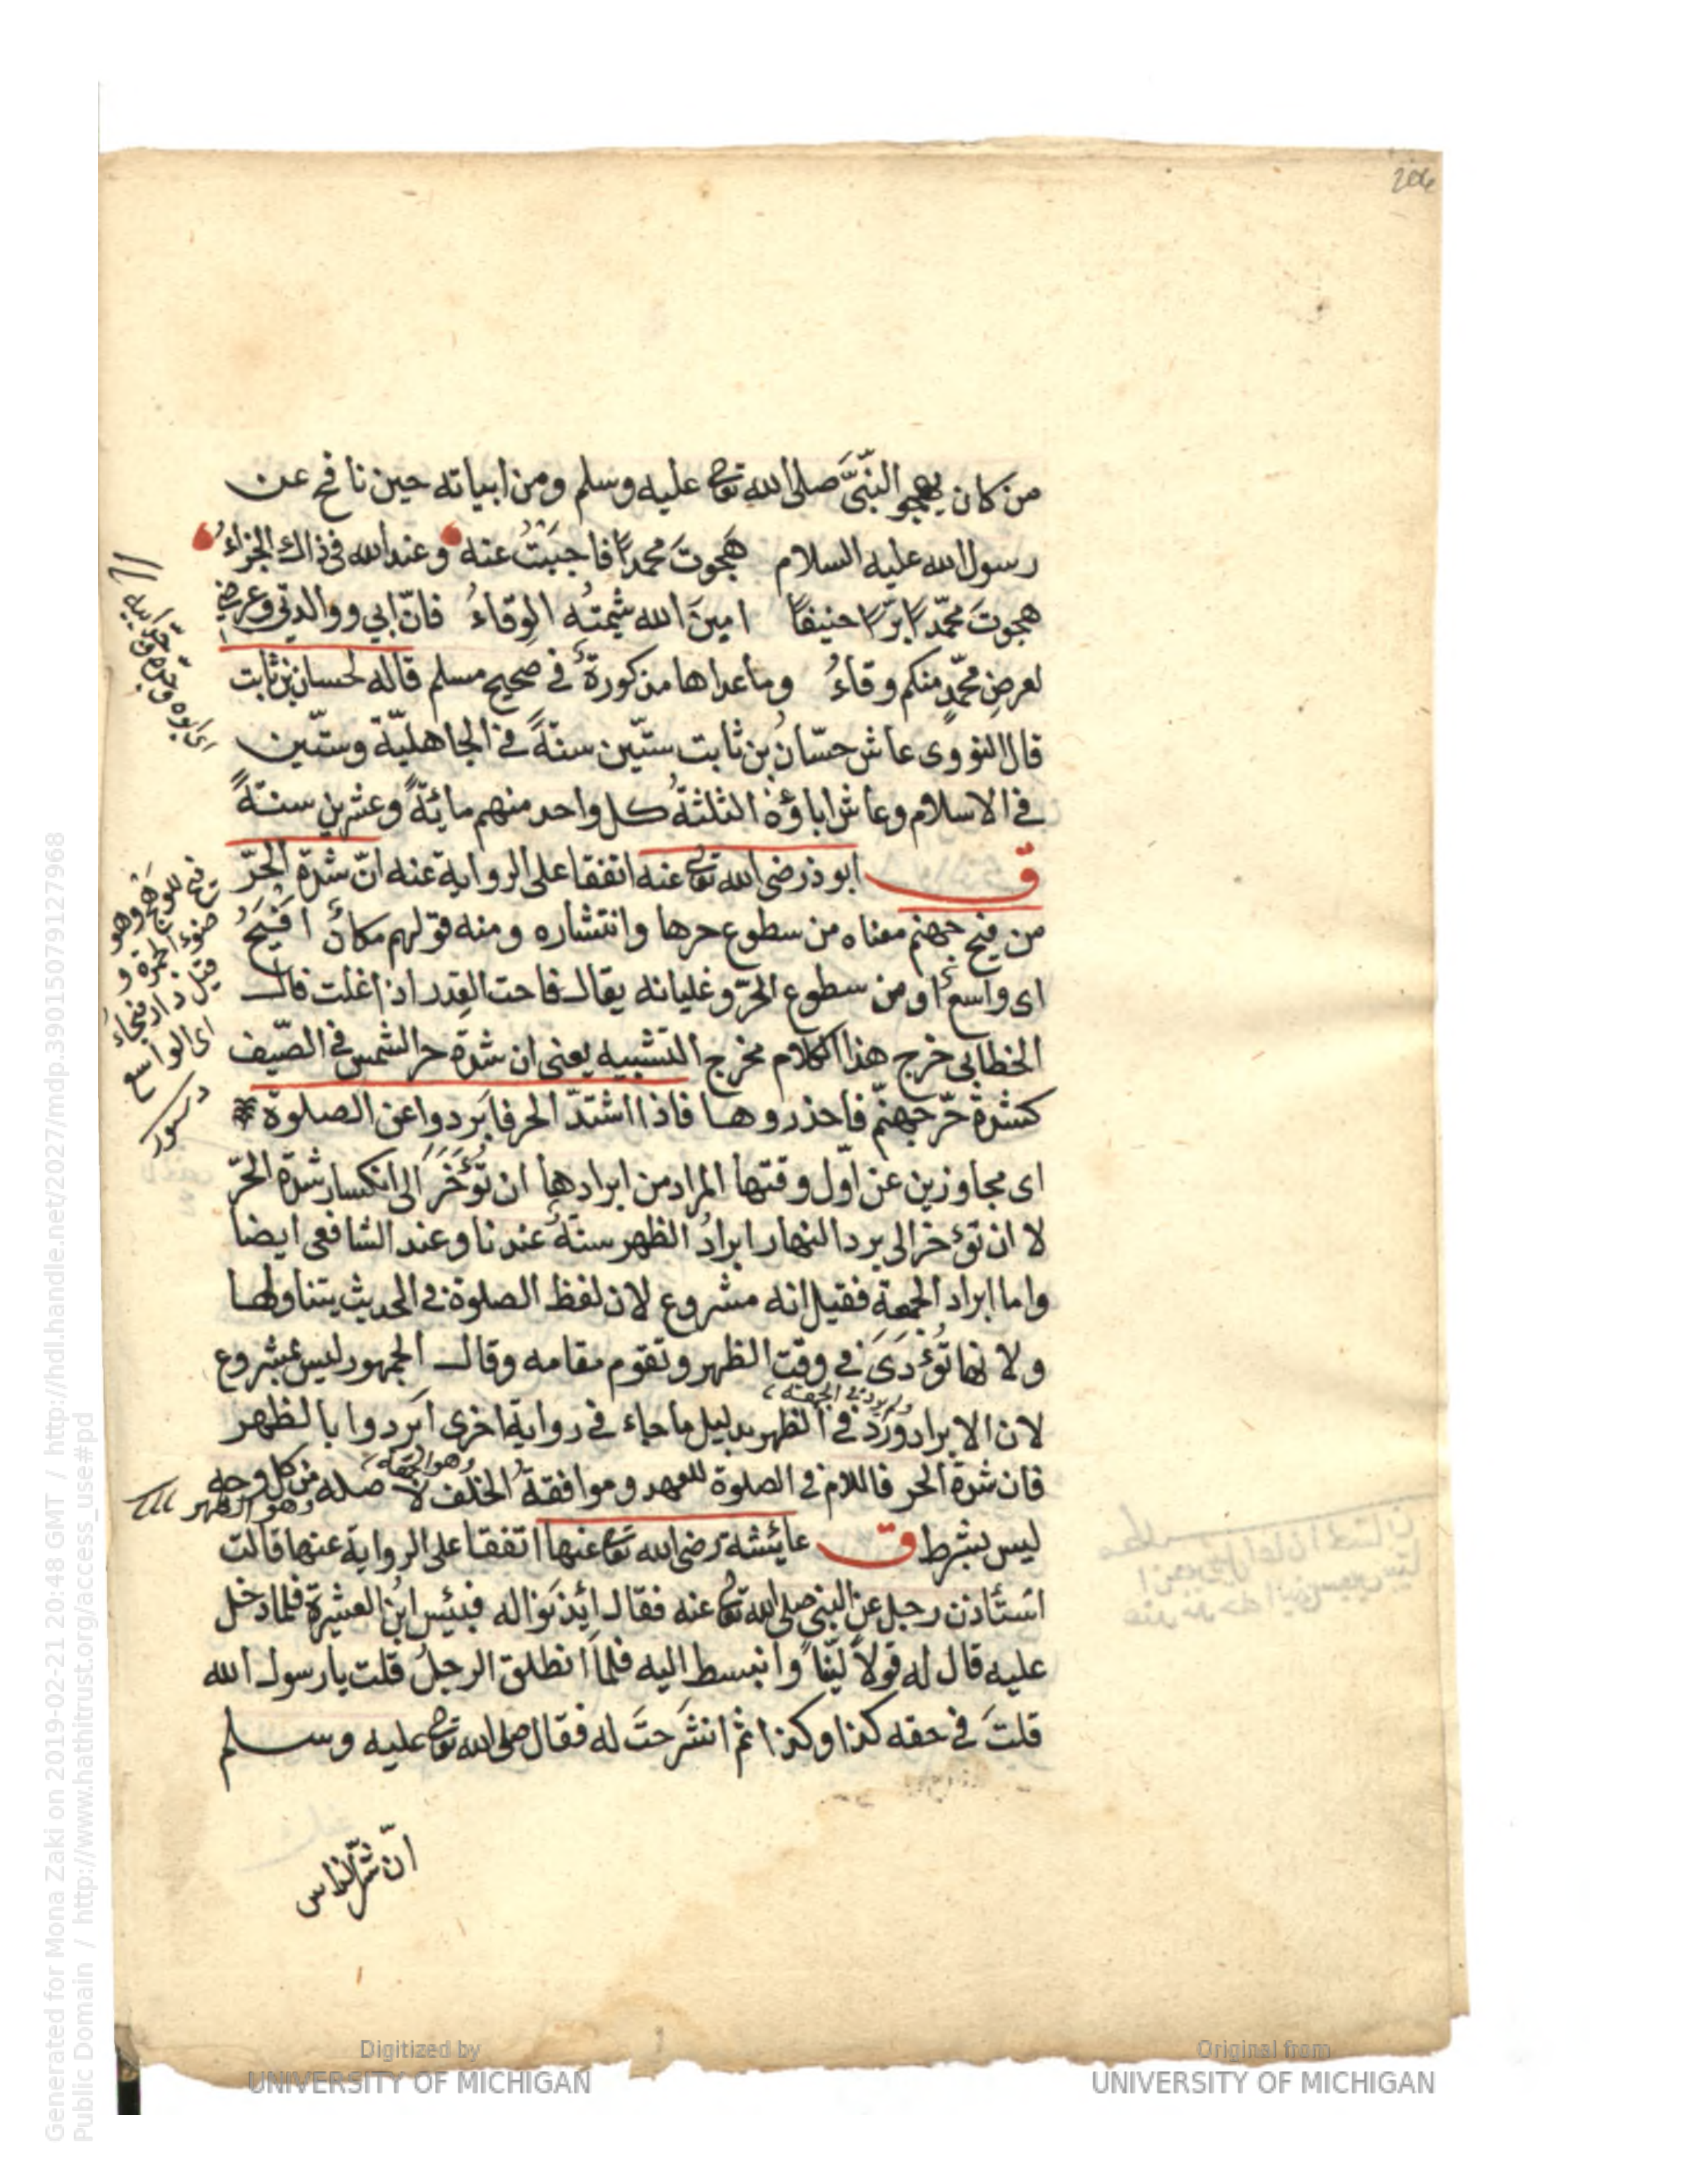 206
من كان يهجو النّبيَّ صلى الله تعا عليه وسلم ومن ابياته حين نافح عن
رسول الله عليه السلام هَجوتَ محمدًا فاجبَبْتُ عنه وعند الله فى ذاك الجزاءُ
هجوتَ محمّدًا برًّا حنيفًا امينَ الله شيمتُه الوِقاءُ فانّ ابي ووالدتي وعرضي
لعرضِ محمّدٍ منكم وقاءُ وما عداها مذكورةٌ في صحيح مسلم قاله لحسان بن ثابت
قال النووى عاش حسّانُ بن ثابت ستّين سنةً في الجاهليّة وستّين
في الاسلام وعاش اباؤُهُ الثلثةُ كل واحد منهم مائةً وعشرين سنةً
ق ابو ذر رضى الله تعا عنه اتفقا على الرواية عنه انّ شدة الحرّ
من فيح جهنم معناه من سطوع حرها وانتشاره ومنه قولهم مكانٌ افْيَحُ
اى واسع او من سطوع الحرّ وغليانه يقال فاحت القِدر اذا غلت قال
الخطابى خرج هذا الكلام مخرج التشبيه يعنى ان شدة حر الشمس في الصّيف
كشدة حرّ جهنّم فاحذروها فاذا اشتدّ الحر فابَردوا عن الصلوة
اى مجاوزين عن اوّل وقتها المراد من ابرادها ان تُؤَخَّرَ الى انكسار شدة الحرّ
لا ان تؤخر الى برد النهار ابرادُ الظهر سنةٌ عندنا وعند الشافعى ايضا
واما ابراد الجمعة فقيل انه مشروع لان لفظ الصلوة في الحديث يتناولها
ولانها تُؤدَى في وقت الظهر وتقوم مقامه وقال الجمهور ليس بمشروع
ولم يرد في الجمعة
لان الابراد ورَدَ في الظهر بدليل ما جاء في رواية اخرى ابَردوا بالظهر
وهو الجمعة
فان شدة الحر فاللام في الصلوة للعهد وموافقةُ الخَلَف لاصله من كل وجه
وهو الظهر
ليس بشرط ق عائشة رضى الله تعا عنها اتفقا على الرواية عنها قالت
استئاذن رجل عن النبى صلى الله تعا عنه فقال ايذنوا له فبئس ابنُ العشيرة فلما دخل
عليه قال له قولاً ليّنًا وانبسط اليه فلمّا انطلق الرجلُ قلت يا رسول الله
قلتَ في حقه كذا وكذا ثم انشرحتَ له فقال صلى الله تعا عليه وسلم
انّ شرّ الناس
اى الواسع
Generated for Mona Zaki on 2019-02-21 20:48 GMT / http://hdl.handle.net/2027/mdp.39015079127968
Public Domain / http://www.hathitrust.org/access_use#pd
Digitized by
UNIVERSITY OF MICHIGAN
Original from
UNIVERSITY OF MICHIGAN